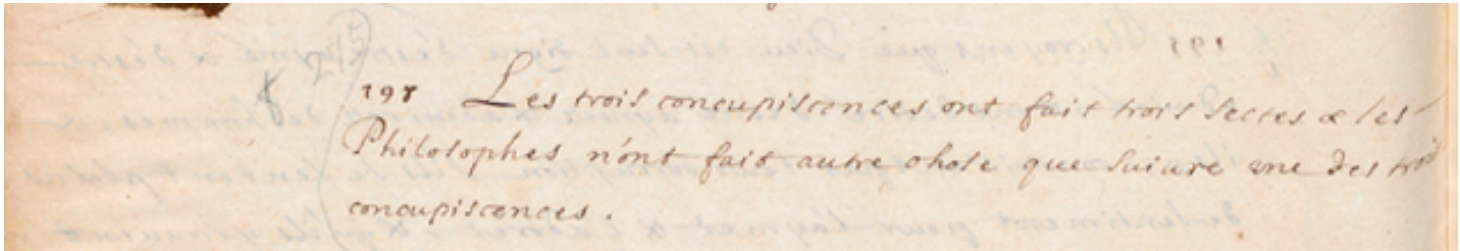 198 Les trois concupiscences ont fait trois sectes & les
Philosophes n'ont fait autre chose que suivre une des trois
concupiscences.